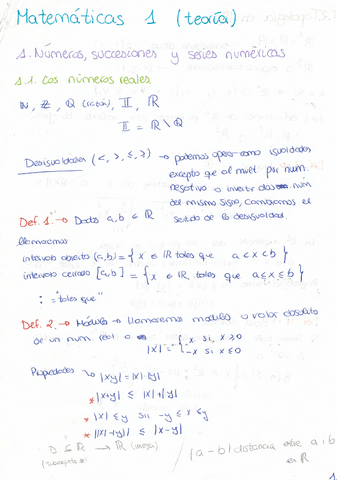 Matemáticas 1 (teoría)
1. Números, sucesiones y series numéricas
1.1. Los números reales
ℕ, ℤ, ℚ, 𝕀, ℝ
𝕀 = ℝ \ ℚ
Desigualdades (<, >, ≤, ≥) → podemos operar como igualdades
excepto que al mult por num.
negativo o invertir dos num
del mismo signo, cambiamos el
sentido de la desigualdad.
Def. 1. → Dados a, b ∈ ℝ
llamamos
intervalo abierto (a,b) = { x ∈ ℝ tales que a < x < b }
intervalo cerrado [a,b] = { x ∈ ℝ tales que a ≤ x ≤ b }
: = "tales que"
Def. 2. → Módulo → llamaremos modulo o valor absoluto
de un num. real a
|x| = { x si, x ≥ 0
-x si, x ≤ 0
Propiedades → |xy| = |x|·|y|
* |x+y| ≤ |x|+|y|
* |x| ≤ y sii -y ≤ x ≤ y
* ||x|-|y|| ≤ |x-y|
|a-b| distancia entre a i b
en ℝ
1